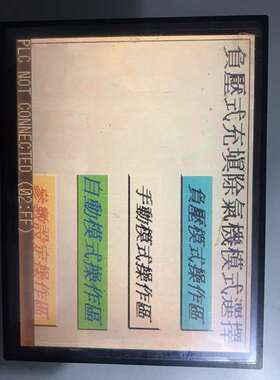 負壓式充填除氣機模式選擇
負壓模式操作區
手動模式操作區
自動模式操作區
參數設定操作區
PLC NOT CONNECTED (02:FF)